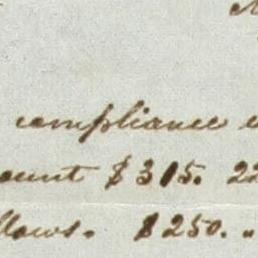 compliance
ount $315. 22
llows. $250. "